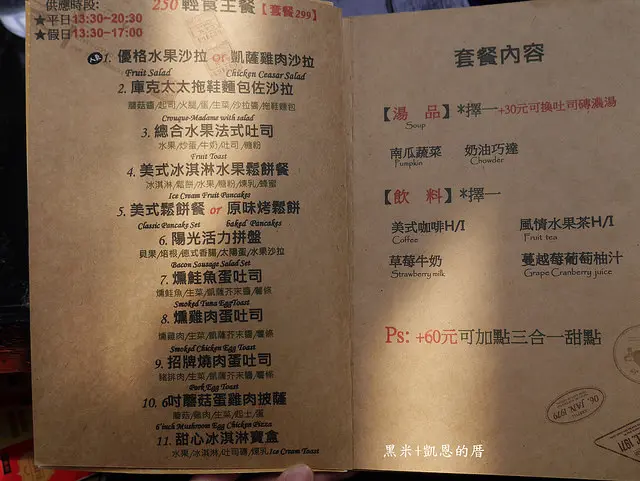 供應時段:
★平日13:30~20:30
★假日13:30~17:00
250 輕食主餐【套餐299】
1. 優格水果沙拉 or 凱薩雞肉沙拉
Fruit Salad Chicken Ceasar Salad
2. 庫克太太拖鞋麵包佐沙拉
蘑菇醬/起司/火腿/蛋/生菜/沙拉醬/拖鞋麵包
Crouque-Madame with salad
3. 總合水果法式吐司
水果/炒蛋/牛奶/吐司/糖粉
Fruit Toast
4. 美式冰淇淋水果鬆餅餐
冰淇淋/鬆餅/水果/糖粉/煉乳/蜂蜜
Ice Cream Fruit Pancakes
5. 美式鬆餅餐 or 原味烤鬆餅
Classic Pancake Set baked Pancakes
6. 陽光活力拼盤
貝果/培根/德式香腸/太陽蛋/水果沙拉
Bacon Sausage Salad Set
7. 燻鮭魚蛋吐司
燻鮭魚/生菜/凱薩芥末醬/薯條
Smoked Tuna EggToast
8. 燻雞肉蛋吐司
燻雞肉/生菜/凱薩芥末醬/薯條
Smoked Chicken Egg Toast
9. 招牌燒肉蛋吐司
豬排肉/生菜/凱薩芥末醬/薯條
Pork Egg Toast
10. 6吋蘑菇蛋雞肉披薩
蘑菇/雞肉/生菜/起士/蛋
6"inch Mushroom Egg Chicken Pizza
11. 甜心冰淇淋寶盒
水果/冰淇淋/吐司磚/煉乳 Ice Cream Toast
套餐內容
【湯 品】*擇一+30元可換吐司磚濃湯
Soup
南瓜蔬菜 奶油巧達
Pumpkin Chowder
【飲 料】*擇一
美式咖啡H/I 風情水果茶H/I
Coffee Fruit tea
草莓牛奶 蔓越莓葡萄柚汁
Strawberry milk Grape Cranberry juice
Ps: +60元可加點三合一甜點
06. JAN. 1979
1971
黑米+凱恩的厝